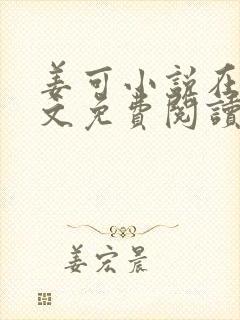 姜可小说在
文免費閱讀
姜宏晨